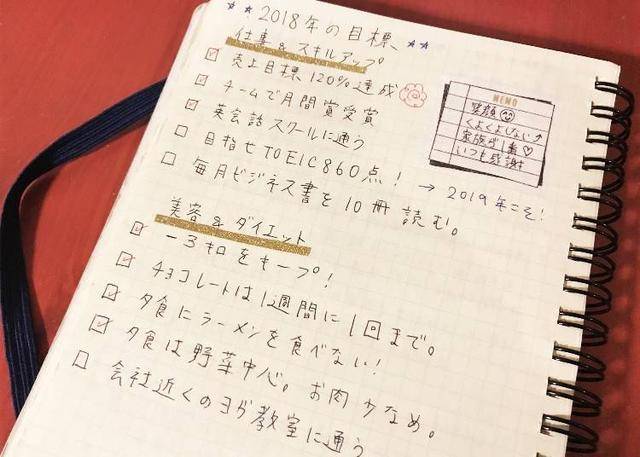 2018年の目標
仕事&スキルアップ
売上目標120%達成
チームで月間賞受賞
英会話スクールに通う
目指せTOEIC860点! → 2019年こそ!
毎月ビジネス書を10冊読む。
MEMO
笑顔
くよくよしない
家族が1番♡
いつも感謝
美容&ダイエット
-3キロをキープ!
チョコレートは1週間に1回まで。
夕食にラーメンを食べない!
夕食は野菜中心。お肉少なめ。
会社近くのヨガ教室に通う